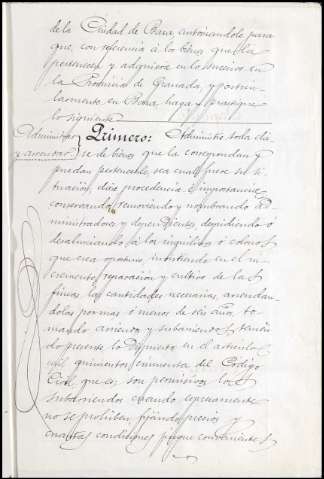 de la Ciudad de Baza autorizandole para
que, con referencia á los bienes que la
pertenecen y adquiera en lo sucesivo en
la Provincia de Granada, y
en Baza haga y practique
lo siguiente
Administrar y arrendar
Primero: Administre toda cla-
se de bienes que la correspondan y
puedan pertenecerle, sea cual fuere su si-
tuación, procedencia é importancia
conservando, removiendo y nombrando ad-
ministradores y dependientes, despidiendo ó
desahuciando á los inquilinos ó colonos
que crea oportuno invirtiendo en el in-
cremento, reparación y cultivo de las
fincas las cantidades necesarias, arrendan-
dolas por mas ó menos de seis años, to-
mando en arriendo y subarriendo, tenien-
do presente lo dispuesto en el artículo
mil quinientos cincuenta del Código
Civil que es son permitidos los
subarriendos cuando expresamente
no se prohiban fijando precios y
cuantas condiciones juzgue convenientes